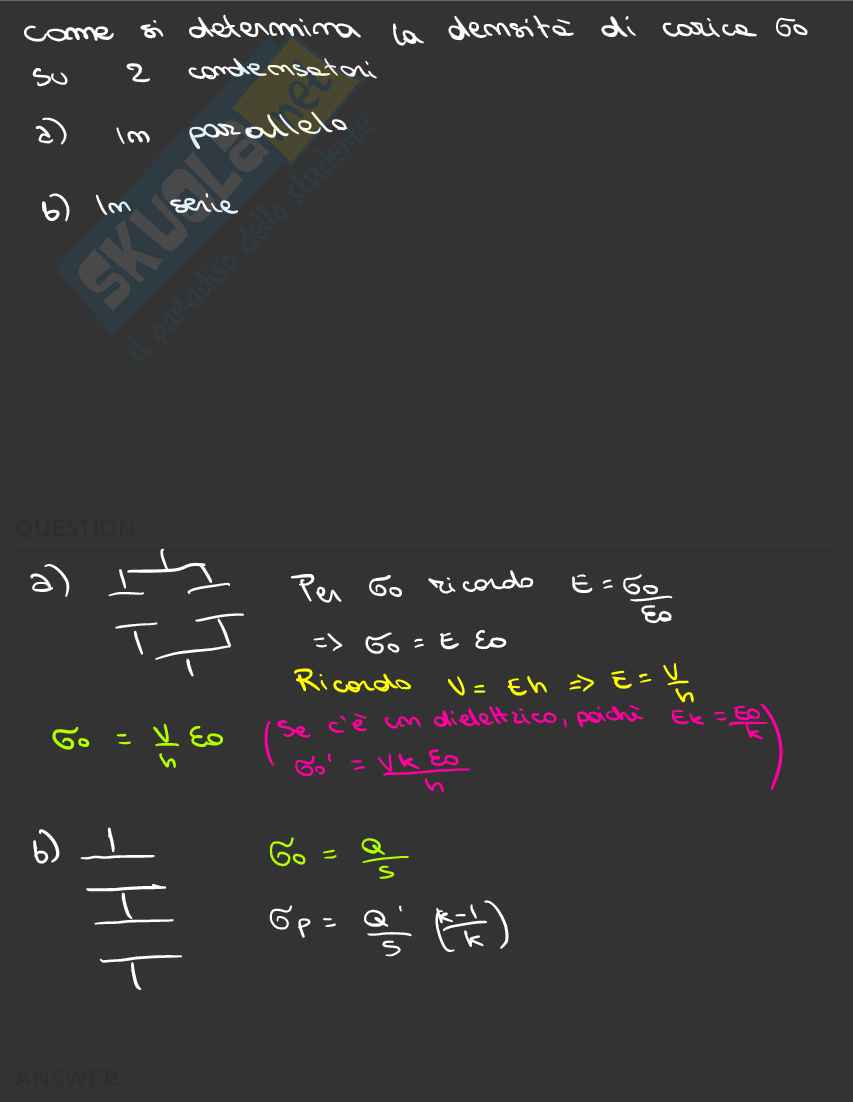 Come si determina la densità di carica σ₀
su 2 condensatori
a) In parallelo
b) In serie
SKUOLA.net
il paradiso dello studente
QUESTION
a) Per σ₀ ricordo E = σ₀/ε₀
=> σ₀ = E ε₀
Ricordo V = Eh => E = V/h
σ₀ = V/h ε₀ (Se c'è un dielettrico, poichè Ek = E₀/k
σ₀' = Vk ε₀/h)
b) σ₀ = Q/S
σp = Q'/S (k-1/k)
ANSWER